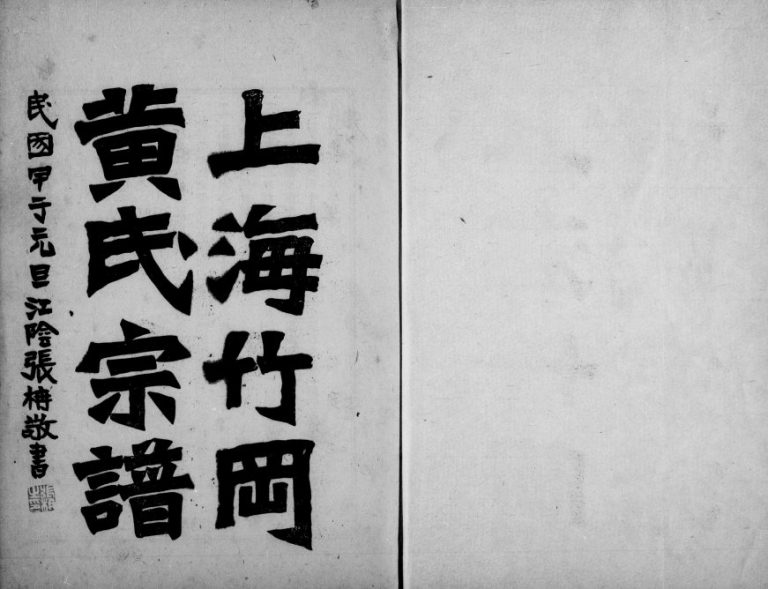 上海竹岡
黃氏宗譜
民國甲子元旦江陰張柟敬書